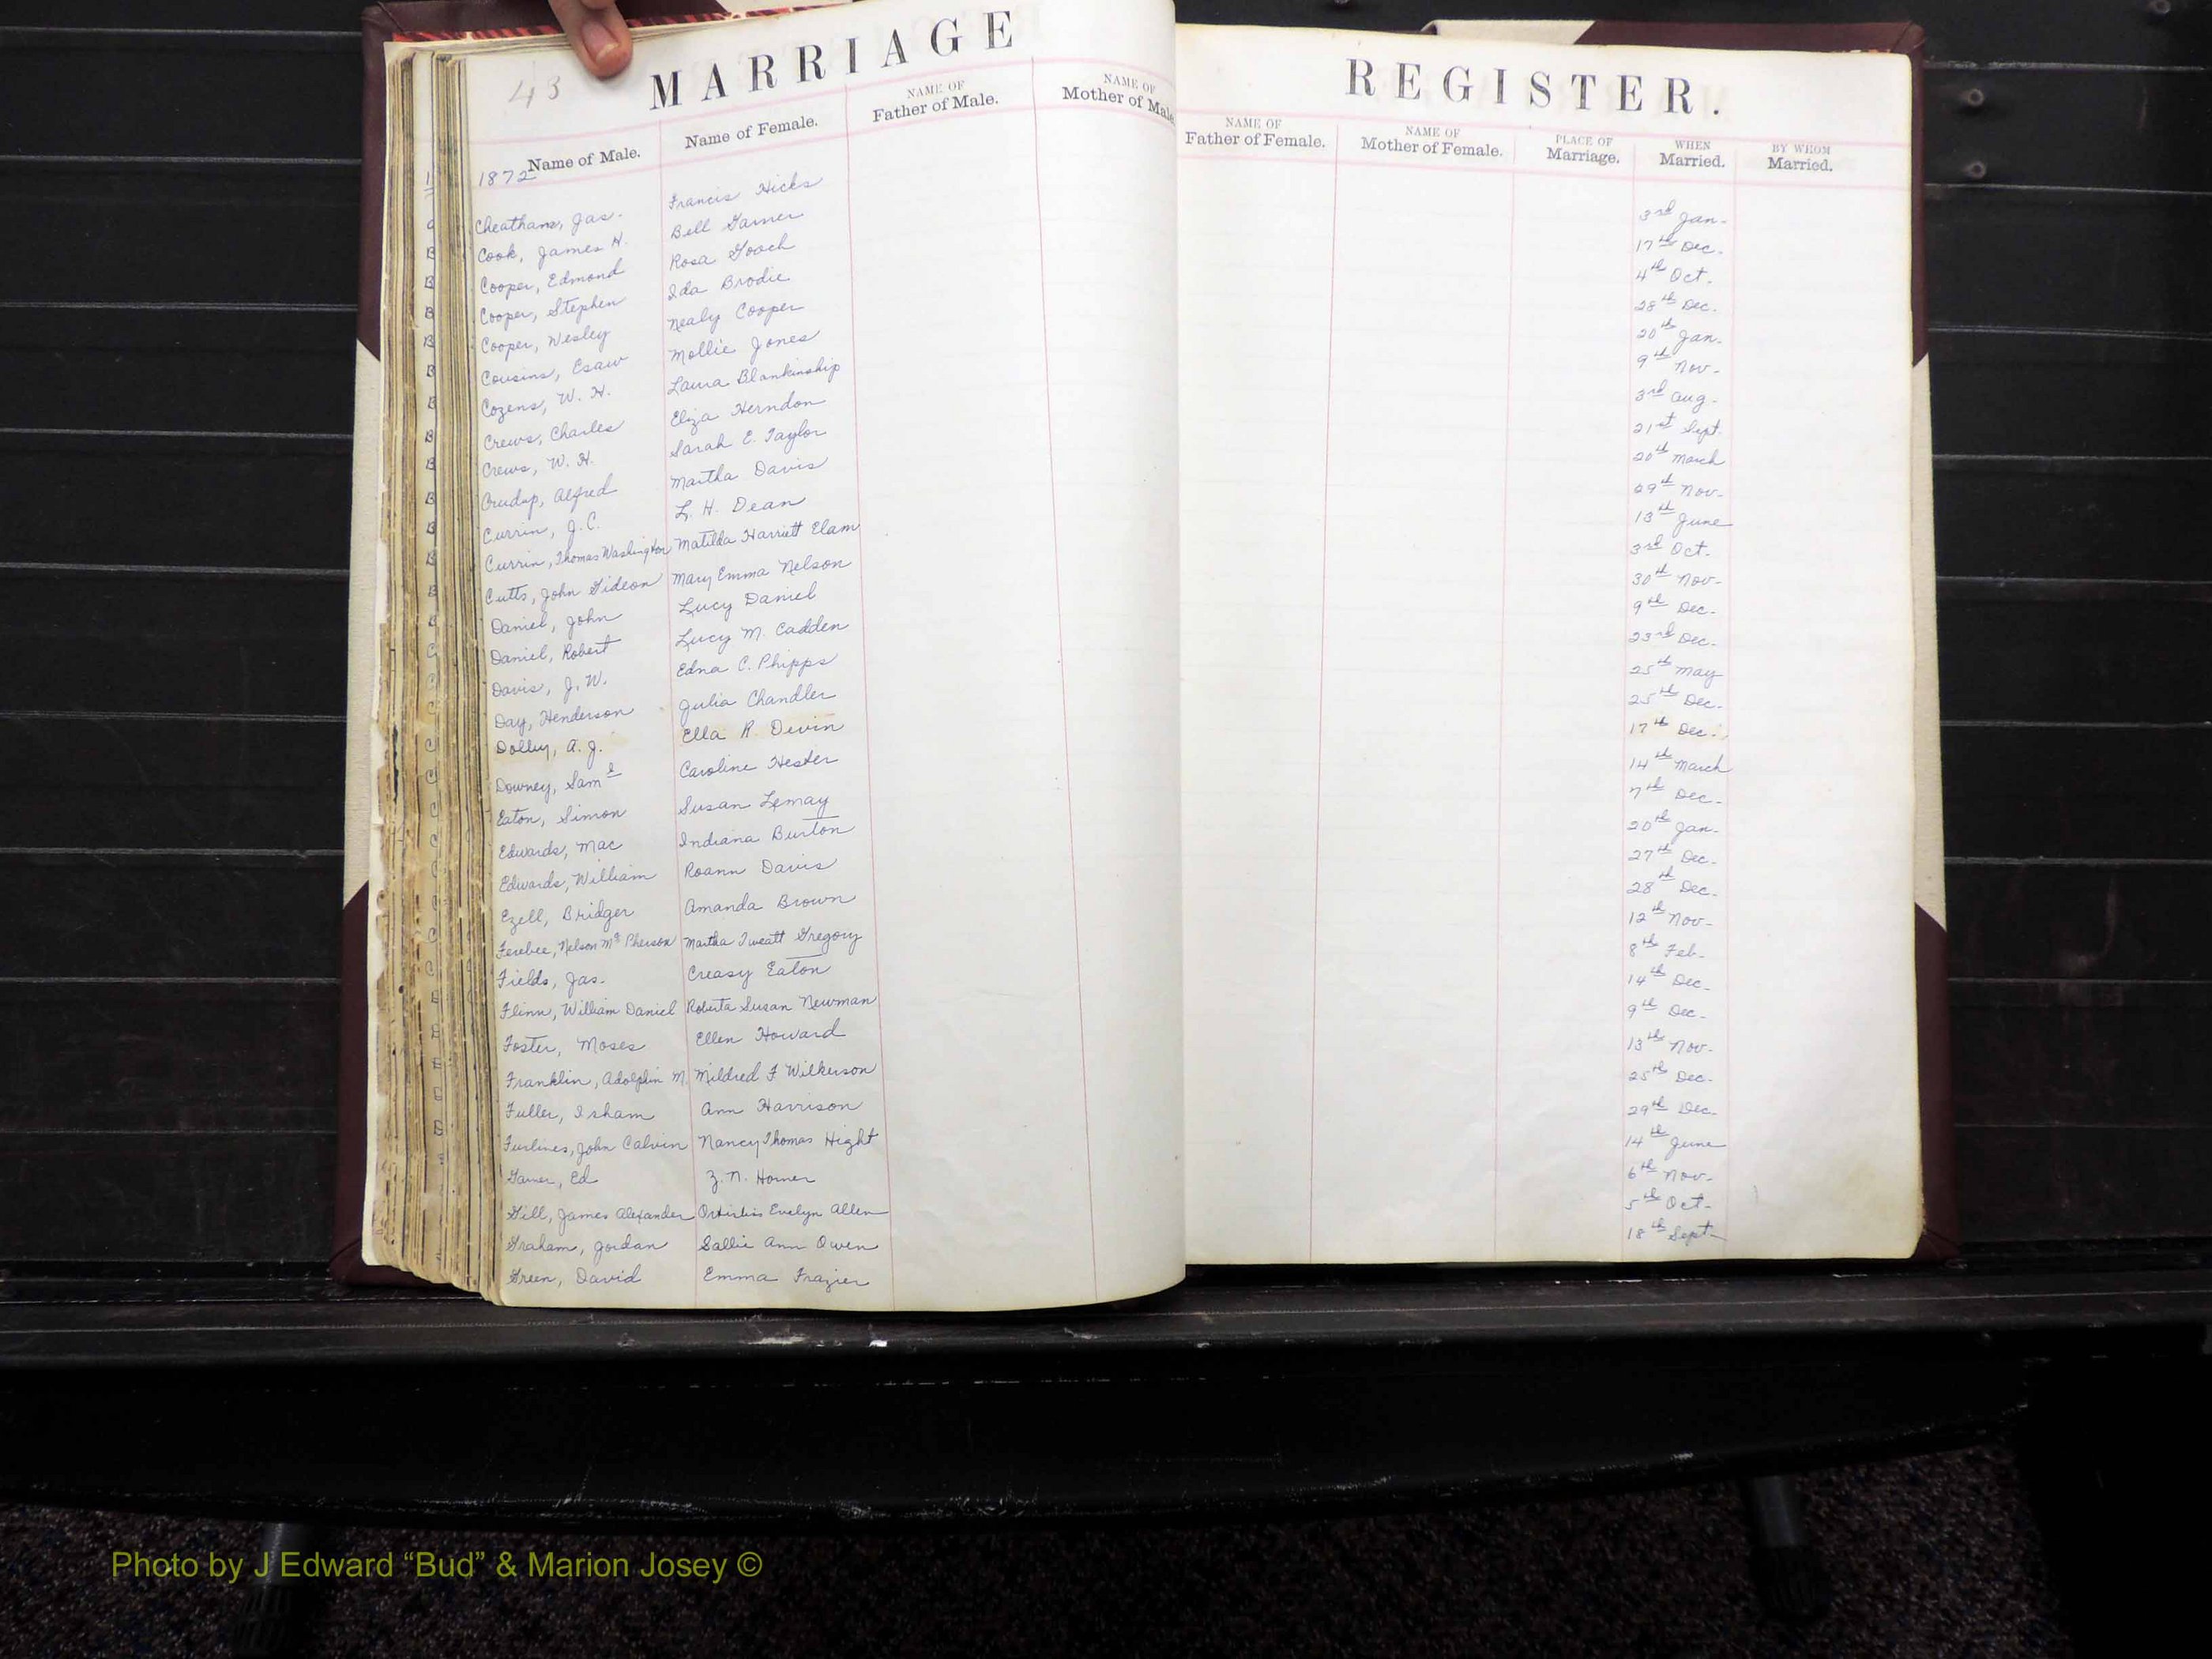 43
MARRIAGE REGISTER.
Name of Male. Name of Female. NAME OF Father of Male. NAME OF Mother of Male. NAME OF Father of Female. NAME OF Mother of Female. PLACE OF Marriage. WHEN Married. BY WHOM Married.
1872
Cheatham, Jas. Francis Hicks 3rd Jan-
Cook, James H. Bell Garner 17th Dec.
Cooper, Edmond Rosa Gooch 4th Oct.
Cooper, Stephen Ida Brodie 28th Dec.
Cooper, Wesley Nealy Cooper 20th Jan-
Cousins, Esaw Mollie Jones 9th Nov-
Cozens, W. H. Laura Blankinship 3rd Aug-
Crews, Charles Eliza Herndon 21st Sept.
Crews, W. H. Sarah E. Taylor 20th March
Crudup, Alfred Martha Davis 29th Nov-
Currin, J. C. L. H. Dean 13th June
Currin, Thomas Washington Matilda Harriett Elam 3rd Oct-
Cutts, John Gideon Mary Emma Nelson 30th Nov-
Daniel, John Lucy Daniel 9th Dec-
Daniel, Robert Lucy M. Cadden 23rd Dec-
Davis, J. W. Edna C. Phipps 25th May
Day, Henderson Julia Chandler 25th Dec-
A. J. Ella R. Devin 17th Dec.
Downey, Saml Caroline Hester 14th March
Eaton, Simon Susan Lemay 7th Dec-
Edwards, Mac Indiana Burton 20th Jan-
Edwards, William Roann Davis 27th Dec-
Ezell, Bridger Amanda Brown 28th Dec-
Ferebee, Nelson McPherson Martha Tweatt Gregory 12th Nov-
Fields, Jas. Creasy Eaton 8th Feb-
Flinn, William Daniel Roberta Susan Newman 14th Dec-
Foster, Moses Ellen Howard 9th Dec-
Franklin, Adolphin M. Mildred F Wilkerson 13th Nov-
Fuller, Isham Ann Harrison 25th Dec-
Furlines, John Calvin Nancy Thomas Hight 29th Dec-
Garner, Ed Z. N. Horner 14th June
Gill, James Alexander Evelyn Allen 6th Nov-
Graham, Jordan Sallie Ann Owen 5th Oct-
Green, David Emma Frazier 18th Sept-
Photo by J Edward “Bud” & Marion Josey ©